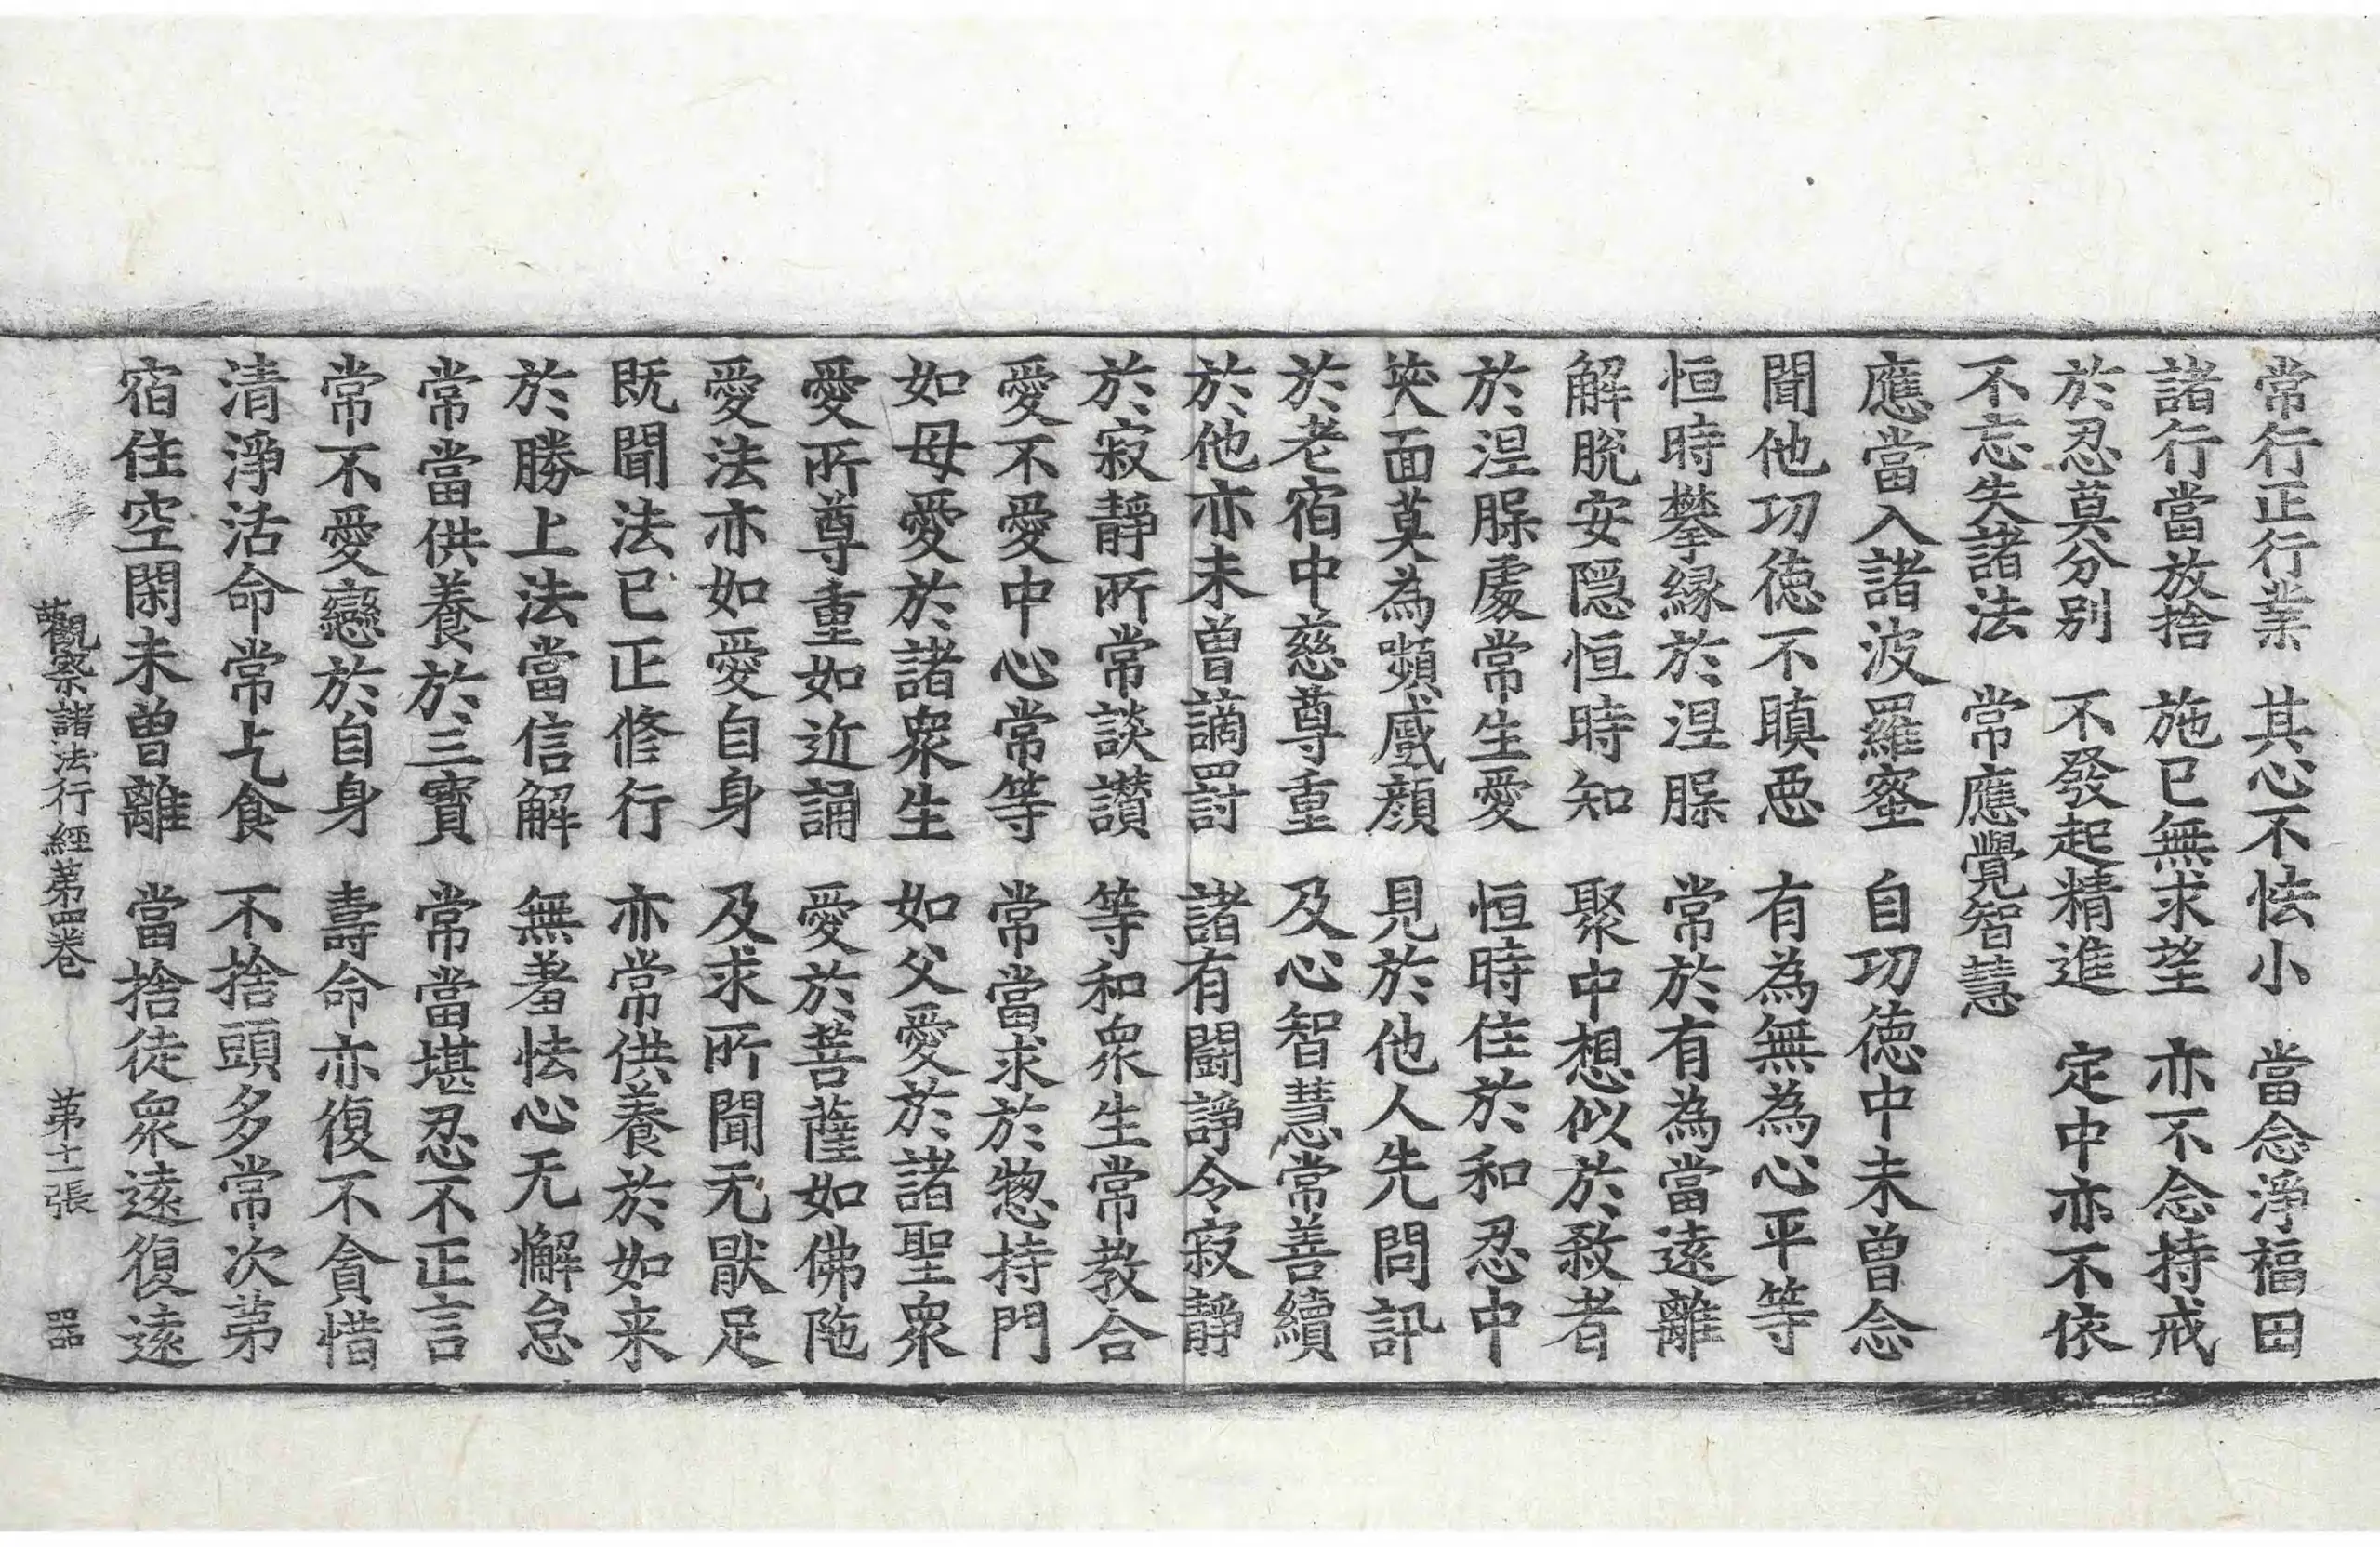 常行正行業　其心不怯小　當念淨福田
諸行當放捨　施已無求望　亦不念持戒
於忍莫分别　不發起精進　定中亦不依
不忘失諸法　常應覺智慧
應當入諸波羅蜜　自功德中未曾念
聞他功德不瞋恶　有為無為心平等
恒時攀緣於涅脲　常於有為當遠離
解脫安隱恒時知　聚中想似於敎者
於涅脲處常生愛　恒時住於和忍中
𥬇面莫為嚬慼顔　見於他人先問訊
於老宿中慈尊重　及心智慧常善續
於他亦未曾謫罸　諸有闘諍令寂靜
於寂靜所常談讚　等和衆生常教合
愛不愛中心常等　常當求於惣持門
如母愛於諸衆生　如父愛於諸聖衆
愛所尊重如近誦　愛於菩薩如佛陁
愛法亦如愛自身　及求所聞无猒足
既聞法已正修行　亦常供養於如来
於勝上法當信解　無羞怯心无懈怠
常當供養於三寳　常當堪忍不正言
常不愛戀於自身　壽命亦復不貪惜
清淨活命常乞食　不捨頭多常次苐
宿住空閑未曾離　當捨徒衆遠復遠
觀察諸法行經苐四卷　苐十一張　器